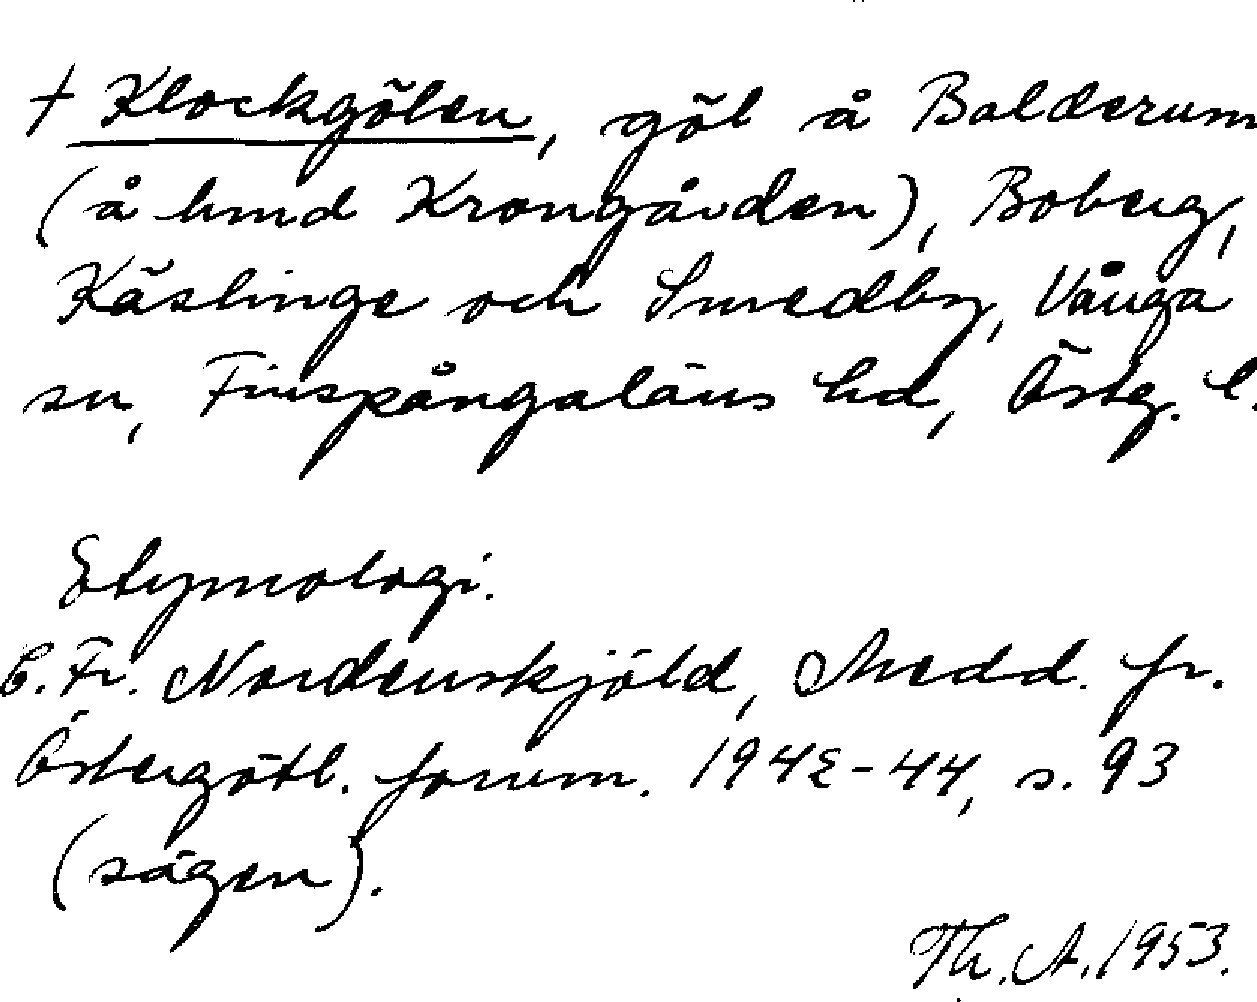 † Klockgölen, göl å Balderum
(å hmd Krongården), Boberg,
Käslinge och Smedby, Vånga
sn, Finspångaläns hd, Östg. l.
Etymologi.
C. Fr. Nordenskjöld, Medd. fr.
Östergötl. fornm. 1942-44, s. 93
(sägen).
Th. A. 1953.